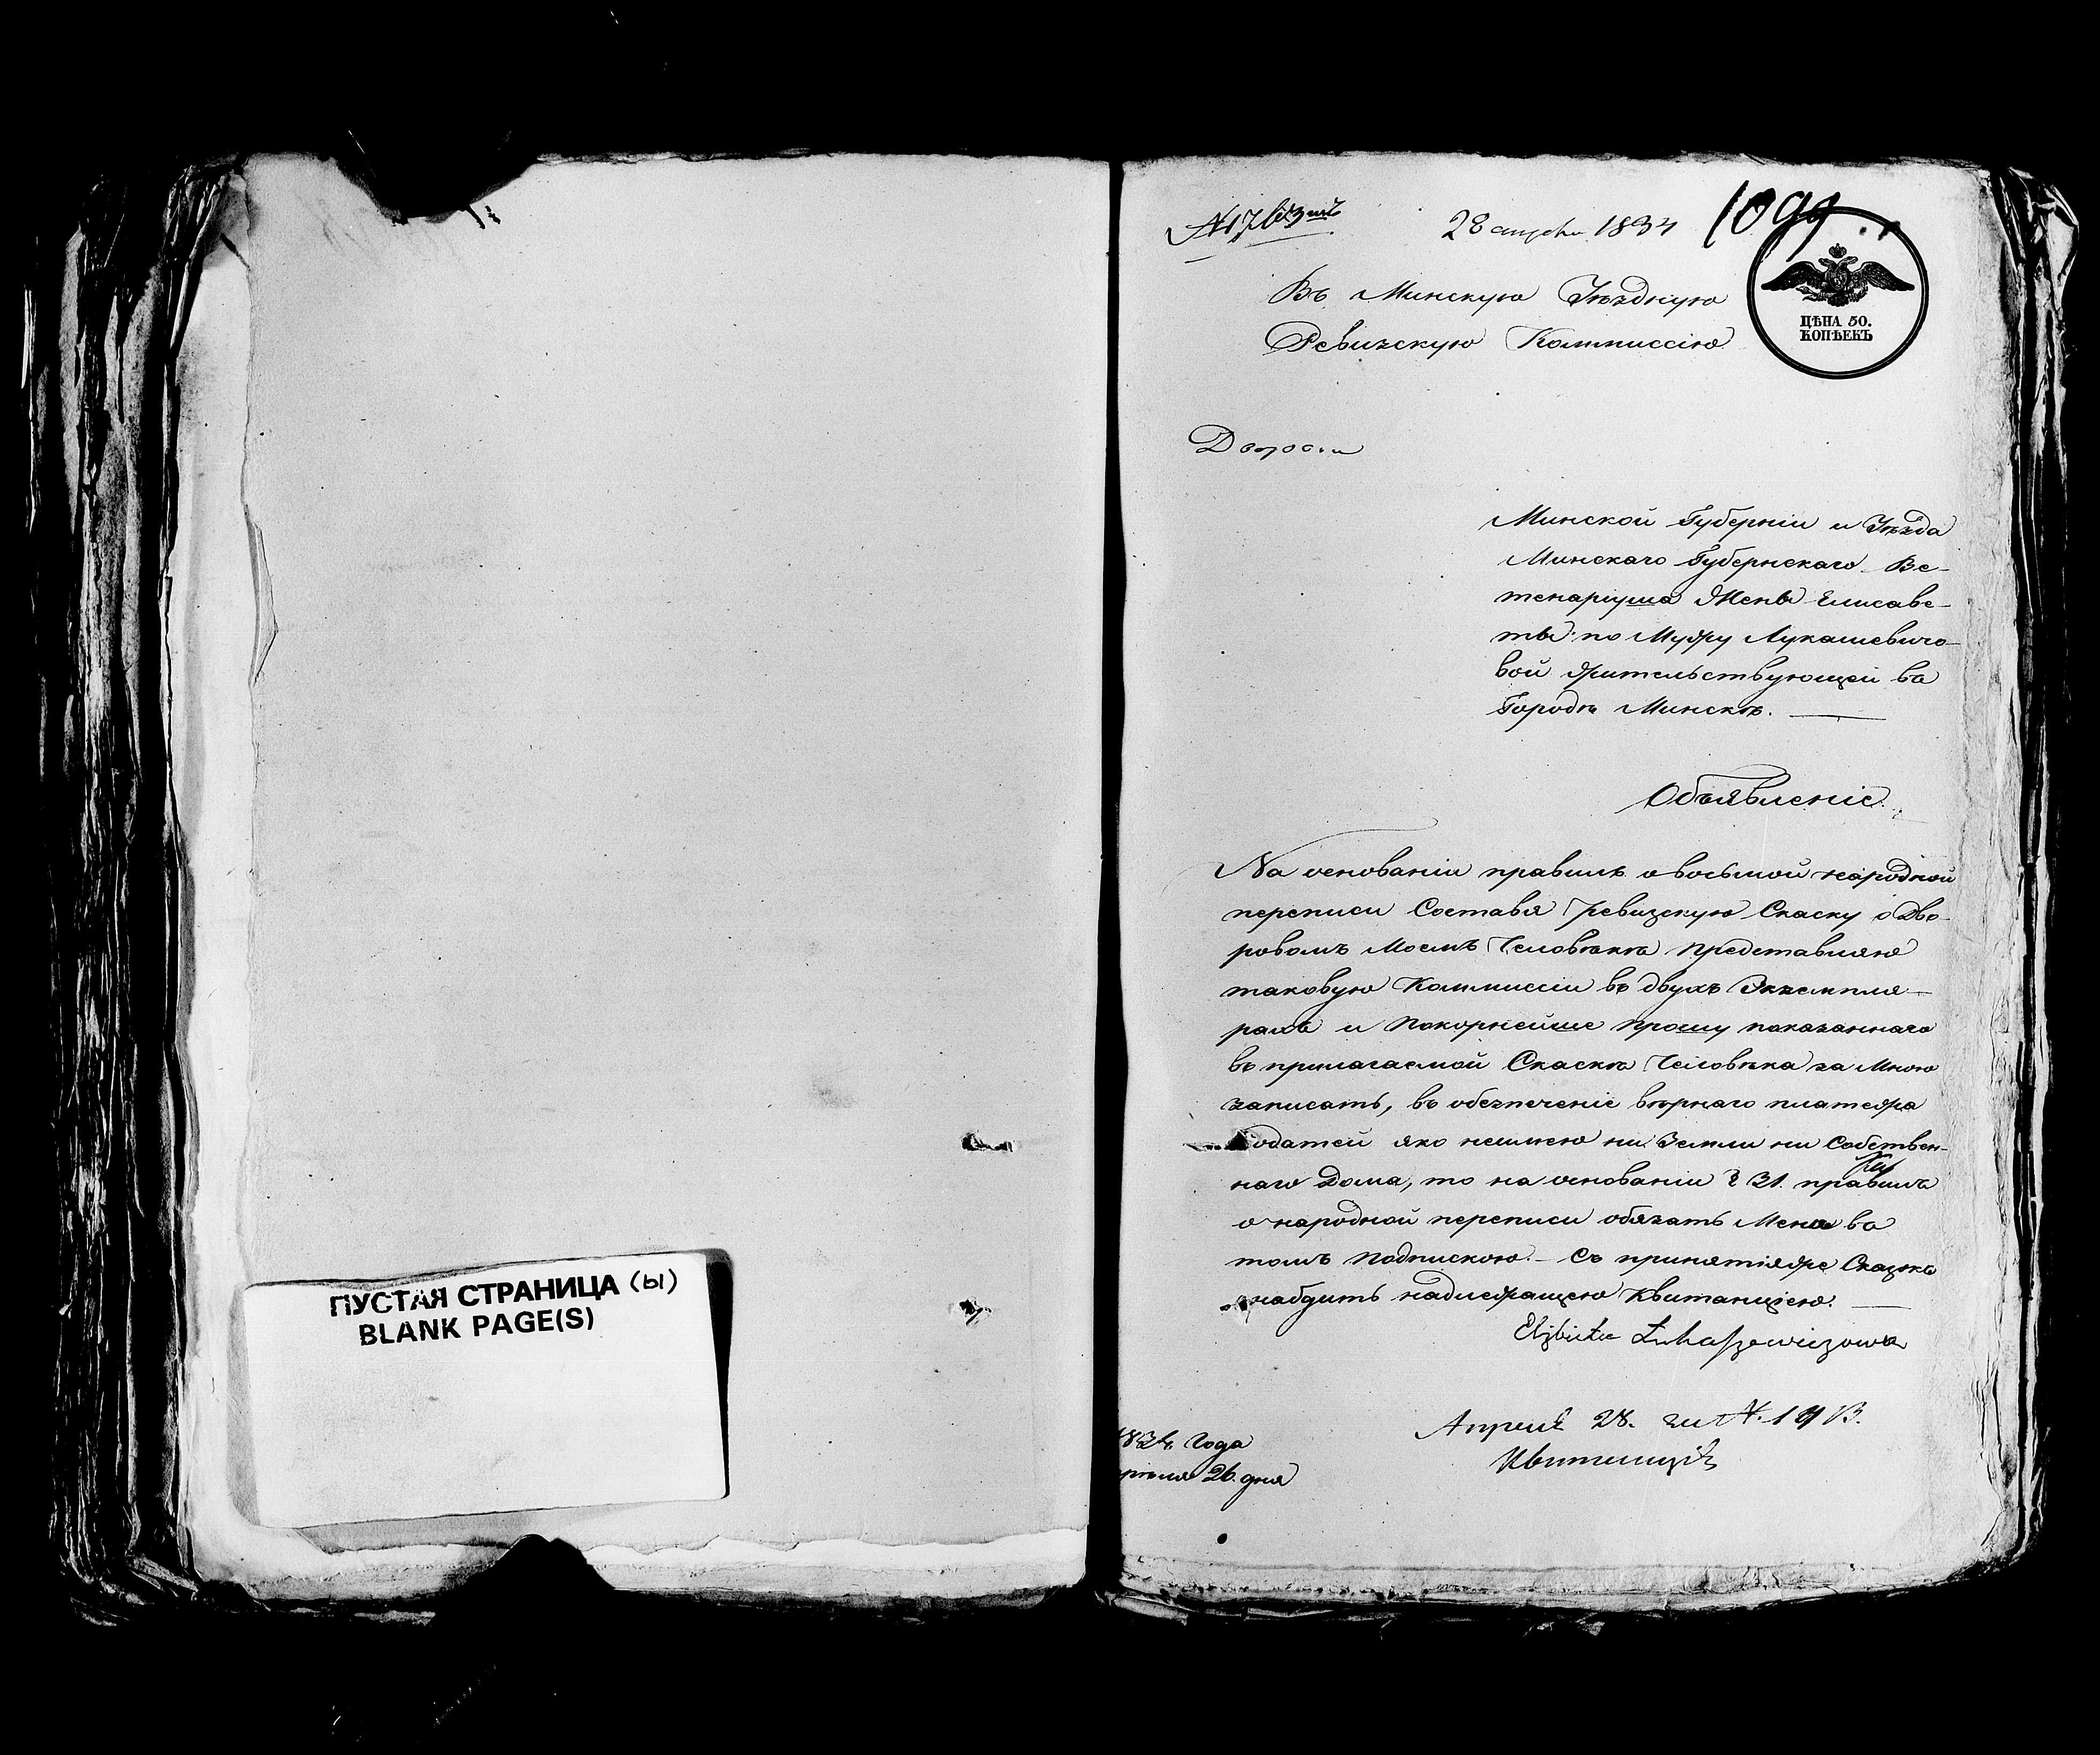 ПУСТАЯ СТРАНИЦА (ы)
BLANK PAGE(S)
28 апреля 1834
1099
Въ Минскую Уѣздную
Ревизскую Коммиссію
ЦѢНА 50.
КОПѢЕКЪ
Минской Губерніи и Уѣзда
Минскаго Губернскаго Ве-
тенаріуша Жены Елисаве-
ты по Мужу Лукашевичо-
вой жительствующей въ
Городѣ Минскѣ.
Объявленіе.
На основаніи правилъ о восьмой народной
переписи Составя Ревизскую Скаску о Дво-
ровомъ Моемъ Человѣкѣ представляю
таковую Коммиссіи въ двухъ Экземпля-
рахъ и Покорнейше прошу показаннаго
въ прилагаемой Скаскѣ Человѣка за Мною
записать, въ обезпеченіе вѣрнаго платежа
податей яко неимею ни Земли ни Собствен-
наго Дома, то на основаніи § 31. правилъ
о народной переписи обязать Меня въ
томъ Подпискою. – Съ принятіяже Сказки
снабдить надлежащею Квитанціею.
Elżbieta Łukaszewiczowa
Апреля 28. за N.
Квитанція
1834 Года
Апреля 26. дня